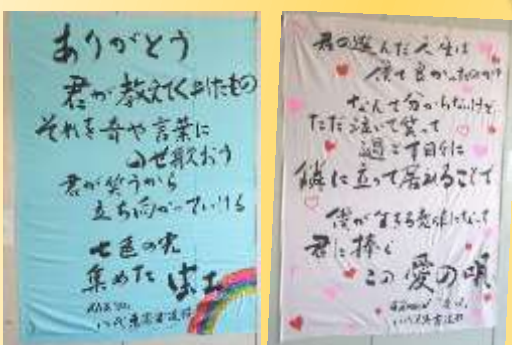 ありがとう
君が教えてくれたもの
それを音や言葉に
のせ歌おう
君が笑うから
立ち向かっていける
七色の光
集めた
君の選んだ人生は
僕で良かったのか
なんて分からないけど
ただ泣いて笑って
過ごす日々に
隣に立って居れることで
僕が生きる意味になって
君に捧ぐ
この愛の唄